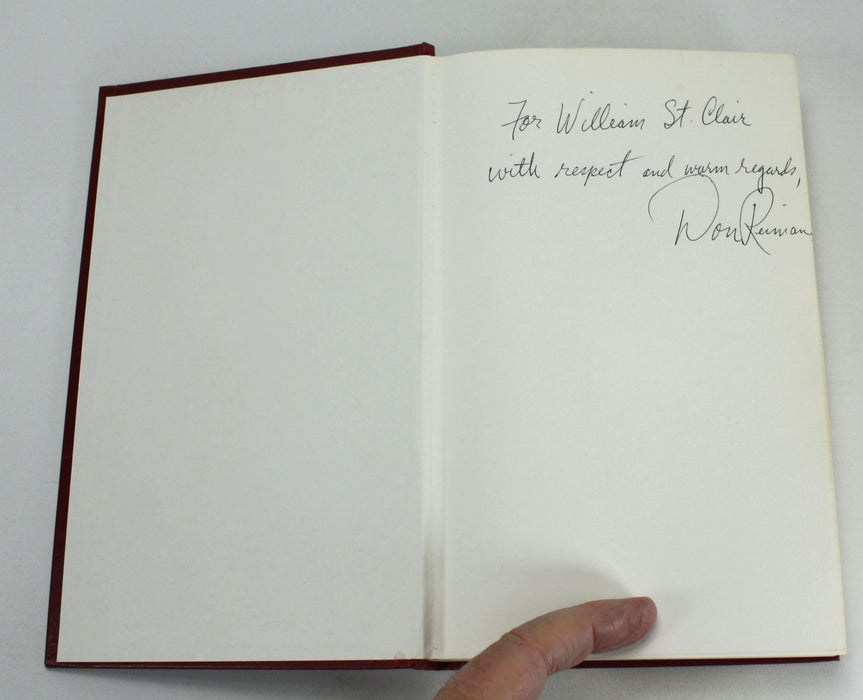 For William St. Clair
with respect and warm regards,
Don Reiman